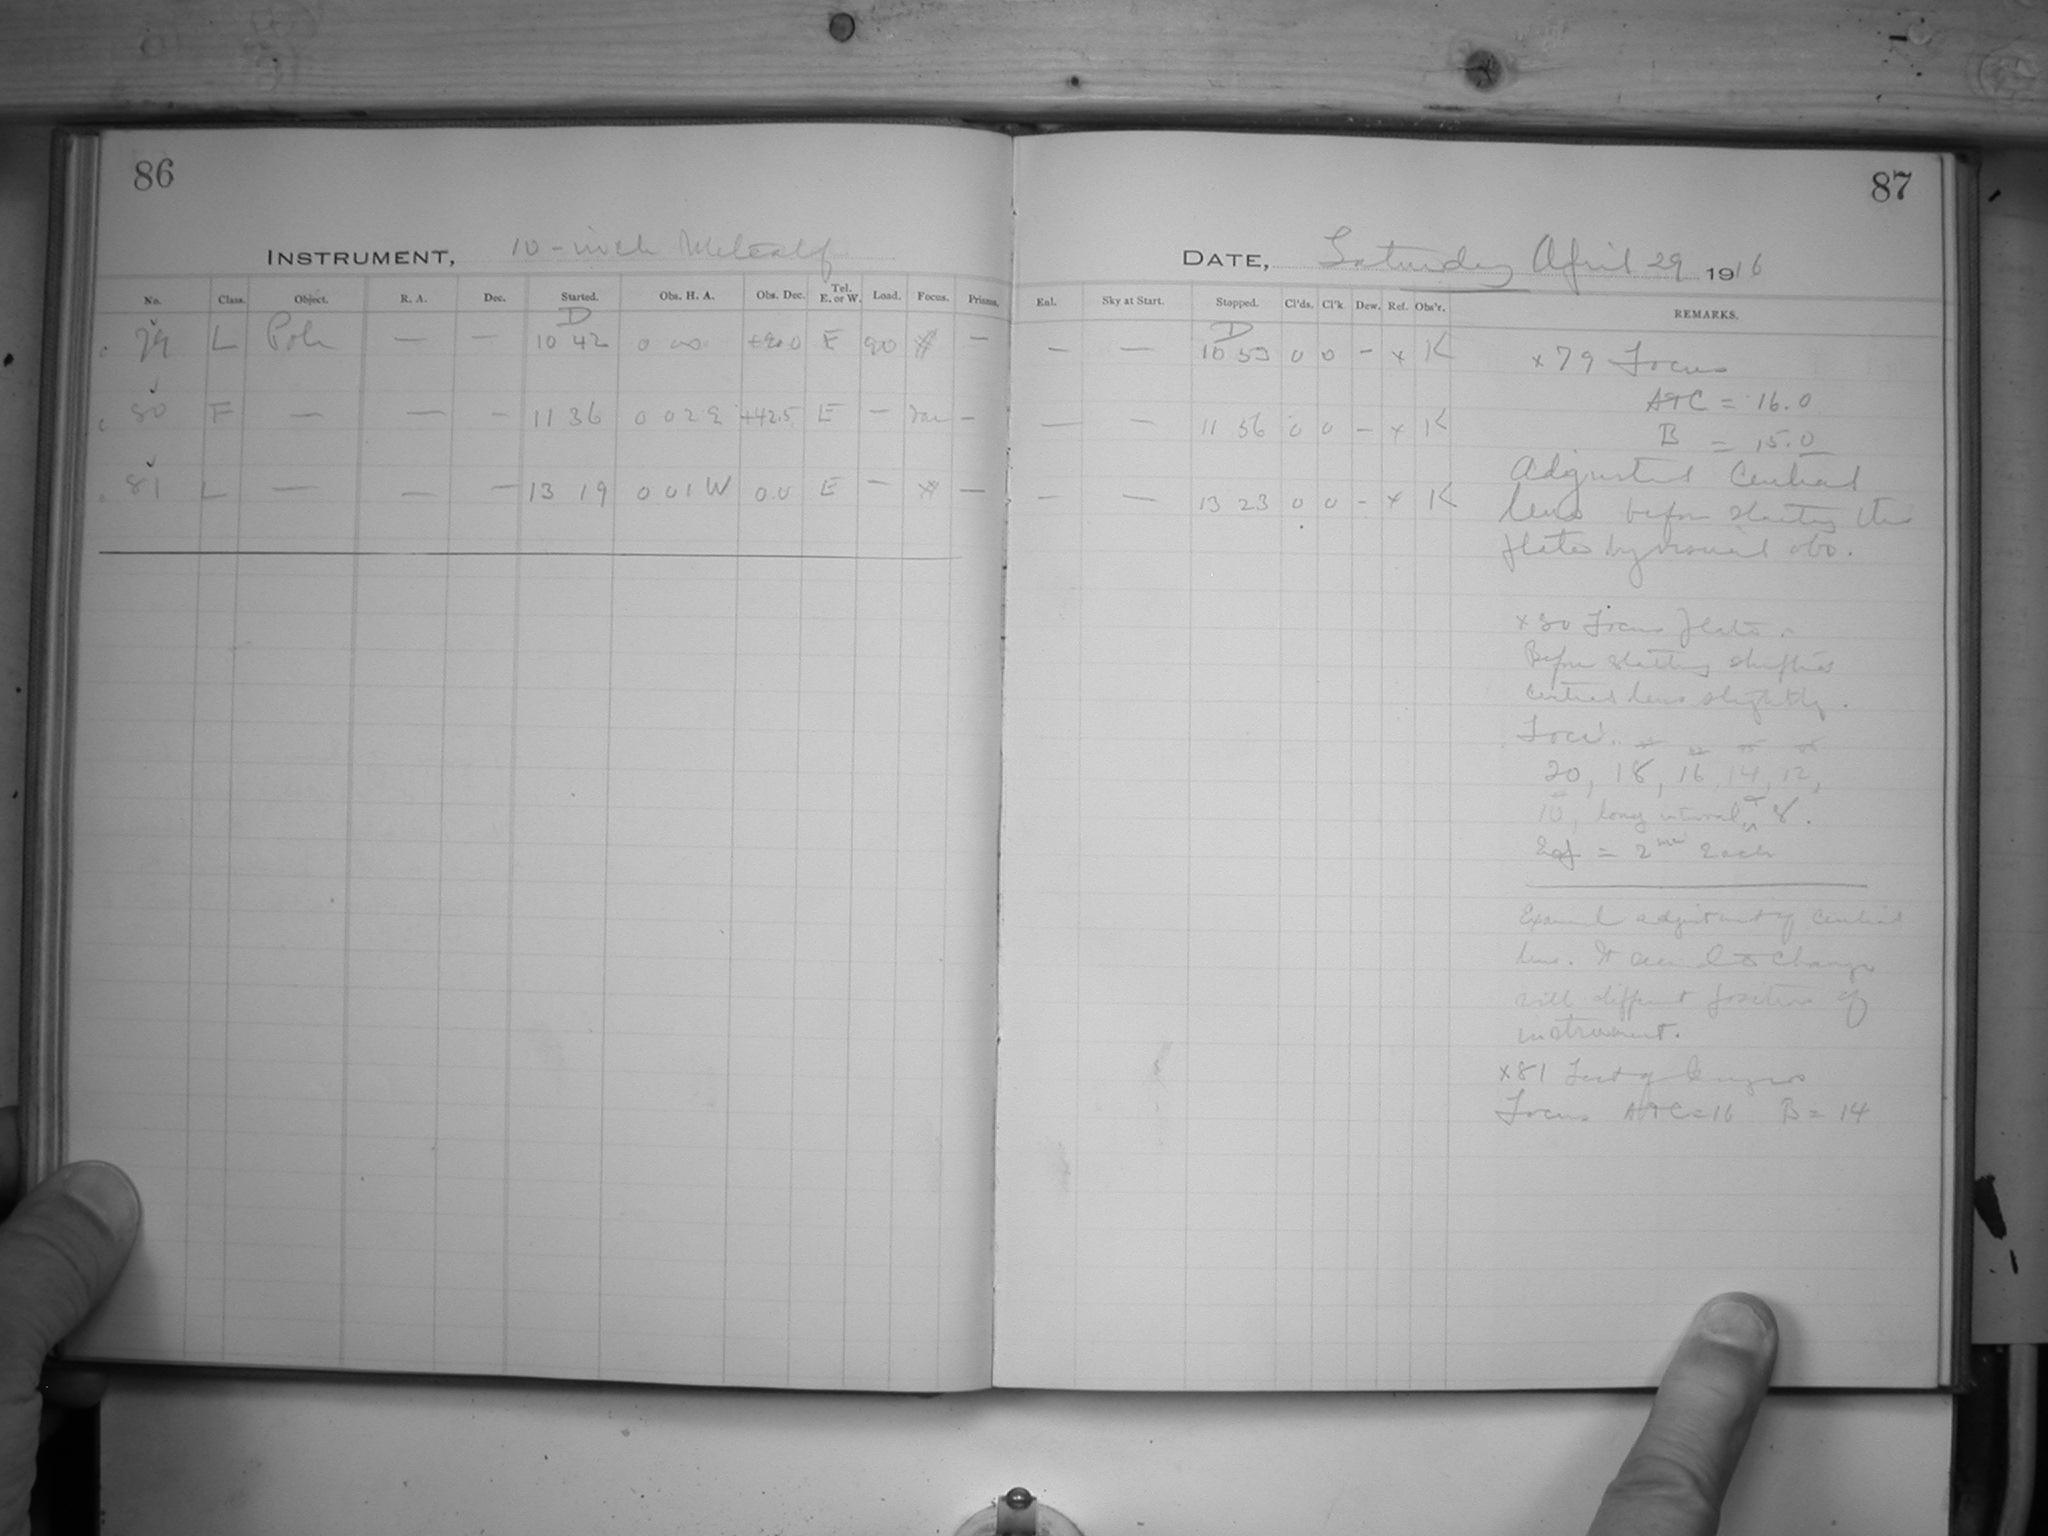 86
INSTRUMENT, 10-inch Metcalf
No. Class. Object. R. A. Dec. Started. Obs. H. A. Obs. Dec. Tel. E. or W. Load. Focus. Prisms.
D
79 L Pole — — 10 42 0 00 +90.0 E 90 * —
80 F — — — 11 36 0 02 E +42.5 E — Var —
81 L — — — 13 19 0 01 W 0.0 E — * —
87
DATE, Saturday April 29 1916
Enl. Sky at Start. Stopped. Cl'ds. Cl'k Dew. Ref. Obs'r. REMARKS.
D
— — 10 53 0 0 – x K
— — 11 56 0 0 – x K
— — 13 23 0 0 – x K
x 79 Focus
A+C = 16.0
B = 15.0
Adjusted Central
lens before starting this
plate by visual obs.
x 80 Focus plate.
Before starting shifted
central lens slightly.
Foci.
20, 18, 16, 14, 12,
10, long interval, 8.
Exp = 2 each
Examined adjustment of central
lens. It seemed to change
with different positions of
instrument.
x 81 Test of
Focus A+C = 16 B = 14